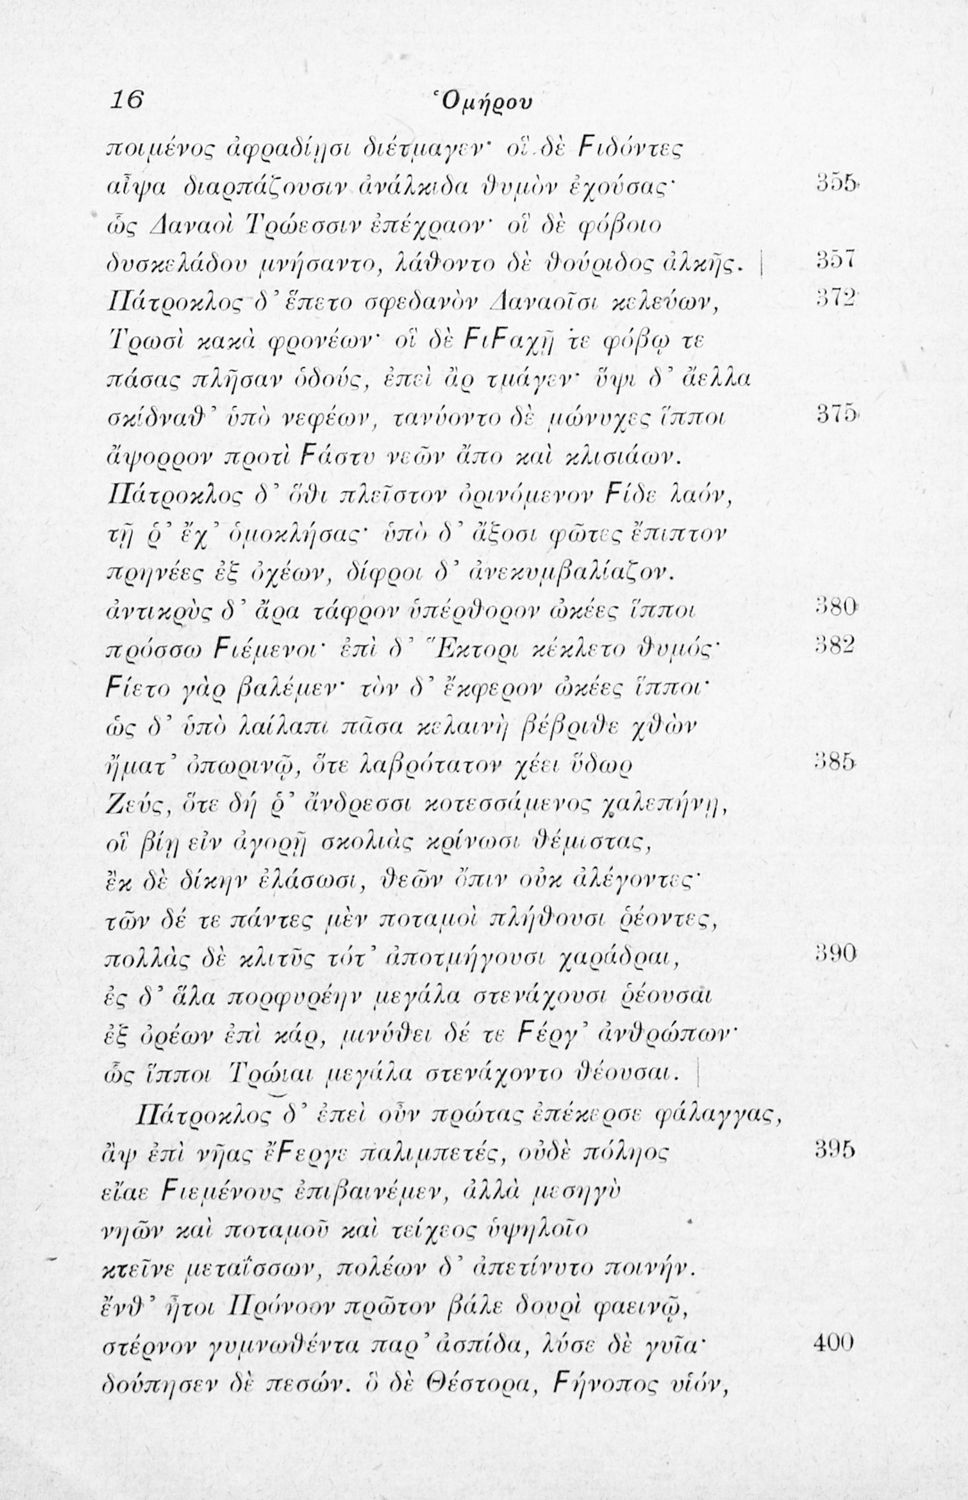 16 Ὁμήρου
ποιμένος ἀφραδίῃσι διέτμαγεν· οἳ δὲ Ϝιδόντες
αἶψα διαρπάζουσιν ἀνάλκιδα θυμὸν ἐχούσας· 355
ὣς Δαναοὶ Τρώεσσιν ἐπέχραον· οἳ δὲ φόβοιο
δυσκελάδου μνήσαντο, λάθοντο δὲ θούριδος ἀλκῆς. | 357
Πάτροκλος δ’ ἕπετο σφεδανὸν Δαναοῖσι κελεύων, 372
Τρωσὶ κακὰ φρονέων· οἳ δὲ ϜιϜαχῇ τε φόβῳ τε
πάσας πλῆσαν ὁδούς, ἐπεὶ ἂρ τμάγεν· ὕψι δ’ ἄελλα
σκίδναθ’ ὑπὸ νεφέων, τανύοντο δὲ μώνυχες ἵπποι 375
ἄψορρον προτὶ Ϝάστυ νεῶν ἄπο καὶ κλισιάων.
Πάτροκλος δ’ ὅθι πλεῖστον ὀρινόμενον Ϝίδε λαόν,
τῇ ῥ’ ἔχ’ ὁμοκλήσας· ὑπὸ δ’ ἄξοσι φῶτες ἔπιπτον
πρηνέες ἐξ ὀχέων, δίφροι δ’ ἀνεκυμβαλίαζον.
ἀντικρὺς δ’ ἄρα τάφρον ὑπέρθορον ὠκέες ἵπποι 380
πρόσσω Ϝιέμενοι· ἐπὶ δ’ Ἕκτορι κέκλετο θυμός· 382
Ϝίετο γὰρ βαλέμεν· τὸν δ’ ἔκφερον ὠκέες ἵπποι·
ὡς δ’ ὑπὸ λαίλαπι πᾶσα κελαινὴ βέβριθε χθὼν
ἤματ’ ὀπωρινῷ, ὅτε λαβρότατον χέει ὕδωρ 385
Ζεύς, ὅτε δή ῥ’ ἄνδρεσσι κοτεσσάμενος χαλεπήνῃ,
οἳ βίῃ εἰν ἀγορῇ σκολιὰς κρίνωσι θέμιστας,
ἐκ δὲ δίκην ἐλάσωσι, θεῶν ὄπιν οὐκ ἀλέγοντες·
τῶν δέ τε πάντες μὲν ποταμοὶ πλήθουσι ῥέοντες,
πολλὰς δὲ κλιτῦς τότ’ ἀποτμήγουσι χαράδραι, 390
ἐς δ’ ἅλα πορφυρέην μεγάλα στενάχουσι ῥέουσαι
ἐξ ὀρέων ἐπὶ κάρ, μινύθει δέ τε Ϝέργ’ ἀνθρώπων·
ὣς ἵπποι Τρώιαι μεγάλα στενάχοντο θέουσαι. |
Πάτροκλος δ’ ἐπεὶ οὖν πρώτας ἐπέκερσε φάλαγγας,
ἂψ ἐπὶ νῆας ἔϜεργε παλιμπετές, οὐδὲ πόληος 395
εἴαε Ϝιεμένους ἐπιβαινέμεν, ἀλλὰ μεσηγὺ
νηῶν καὶ ποταμοῦ καὶ τείχεος ὑψηλοῖο
κτεῖνε μεταΐσσων, πολέων δ’ ἀπετίνυτο ποινήν.
ἔνθ’ ἦτοι Πρόνοον πρῶτον βάλε δουρὶ φαεινῷ,
στέρνον γυμνωθέντα παρ’ ἀσπίδα, λύσε δὲ γυῖα· 400
δούπησεν δὲ πεσών. ὃ δὲ Θέστορα, Ϝήνοπος υἱόν,